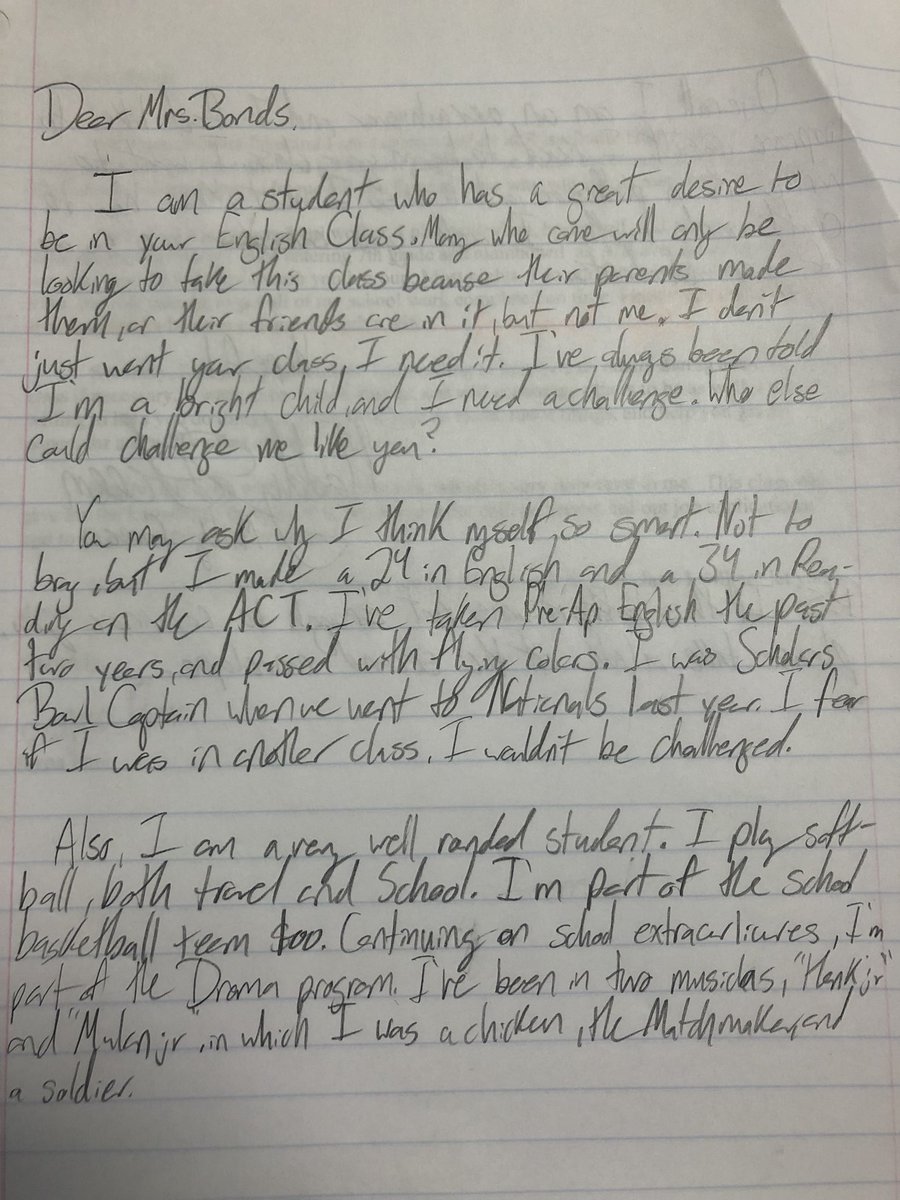 Dear Mrs. Bonds,
I am a student who has a great desire to
be in your English Class. Many who come will only be
looking to take this class because their parents made
them, or their friends are in it, but not me. I don't
just want your class, I need it. I've always been told
I'm a bright child, and I need a challenge. Who else
Could challenge me like you?
You may ask why I think myself so smart. Not to
brag, but I made a 24 in English and a 34 in Rea-
ding on the ACT. I've taken Pre-Ap English the past
two years, and passed with flying colors. I was Scholars
Bowl Captain when we went to Nationals last year. I fear
if I was in another class, I wouldn't be challenged.
Also, I am a very well rounded student. I play soft-
ball, both travel and School. I'm part of the school
basketball team too. Continuing on school
part of the Drama program. I've been in two musicals, "Honk jr"
and "Mulan jr", in which I was a chicken, the Matchmaker, and
a soldier.